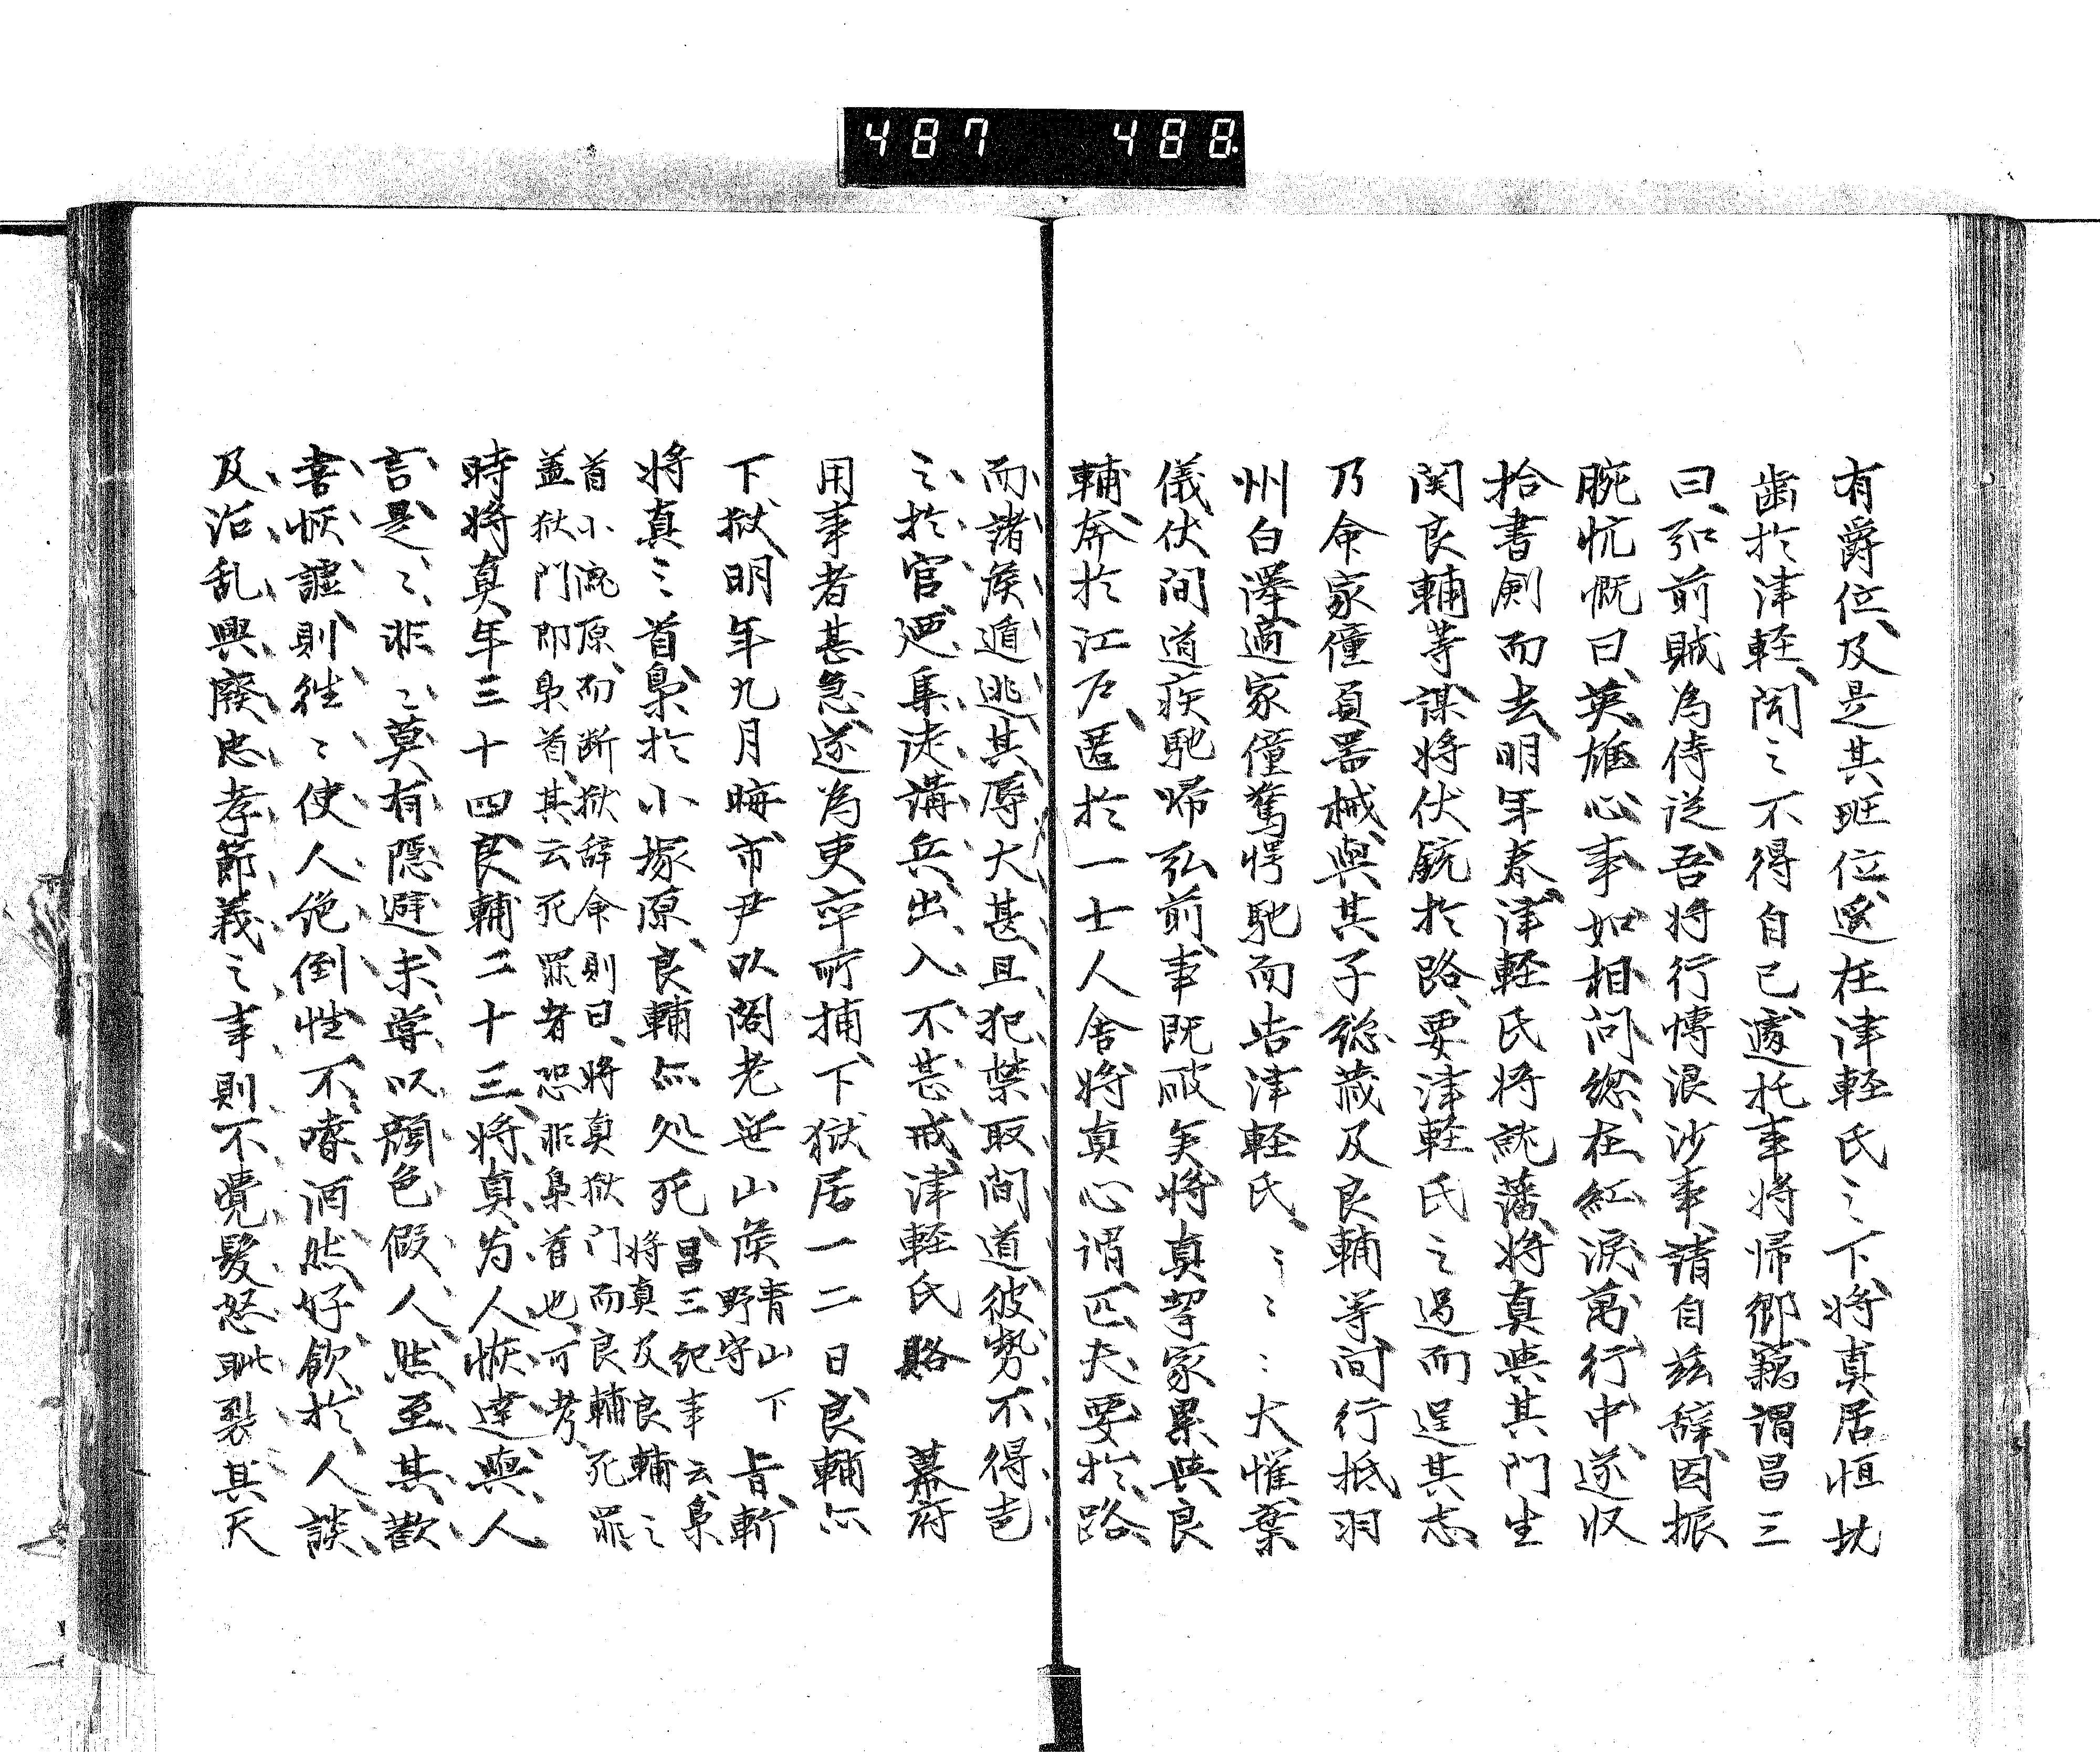 487 488
有爵位、及是其班位、遥在津軽氏之下、将真居恒扼
歯於津軽、聞之不得自已、遽托事将帰郷、竊謂昌三
曰、弘前賊為侍従、吾将行博浪沙事、請自茲辞、因振
腕忼慨曰、英雄心事如相問、総在紅涙萬行中、遂収
拾書剣而去、明年春、津軽氏将就藩、将真与其門生
関良輔等謀将伏銃於路、要津軽氏之過而逞其志、
乃命家僮負器械、与其子総蔵及良輔等、間行抵羽
州白澤、適家僮驚愕馳而告津軽氏、ミミミ大惟棄
儀伏間道疾馳帰弘前、事既破矣、将真挈家累与良
輔、奔於江戸、匿於一士人舎、将真心謂、匹夫要於路、
而諸侯遁逃、其辱大甚、且犯禁取間道、彼勢不得逭
之於官、廼集徒講兵、出入不甚戒、津軽氏賂　幕府
用事者甚急、遂為吏卒所捕、下獄居一二日、良輔亦
下獄、明年九月晦、市尹以閣老笹山侯青山下野守旨、斬
将真ミ首、梟於小塚原、良輔亦処死、昌三紀事云、梟将真及良輔之
首小塚原、而断獄辞命則曰、将真獄門而良輔死罪、
盖獄門即梟首、其云死罪者恐非梟首也、可考、
時将真年三十四、良輔二十三、将真為人恢達、与人
言是ミ非ミ、莫有隠避、未嘗以顔色假人、然至其歓
喜恢謔則往ミ使人絶倒、性不嗜酒、然好飲於人、談
及治乱興廃忠孝節義之事、則不覚髪怒眦裂、其天